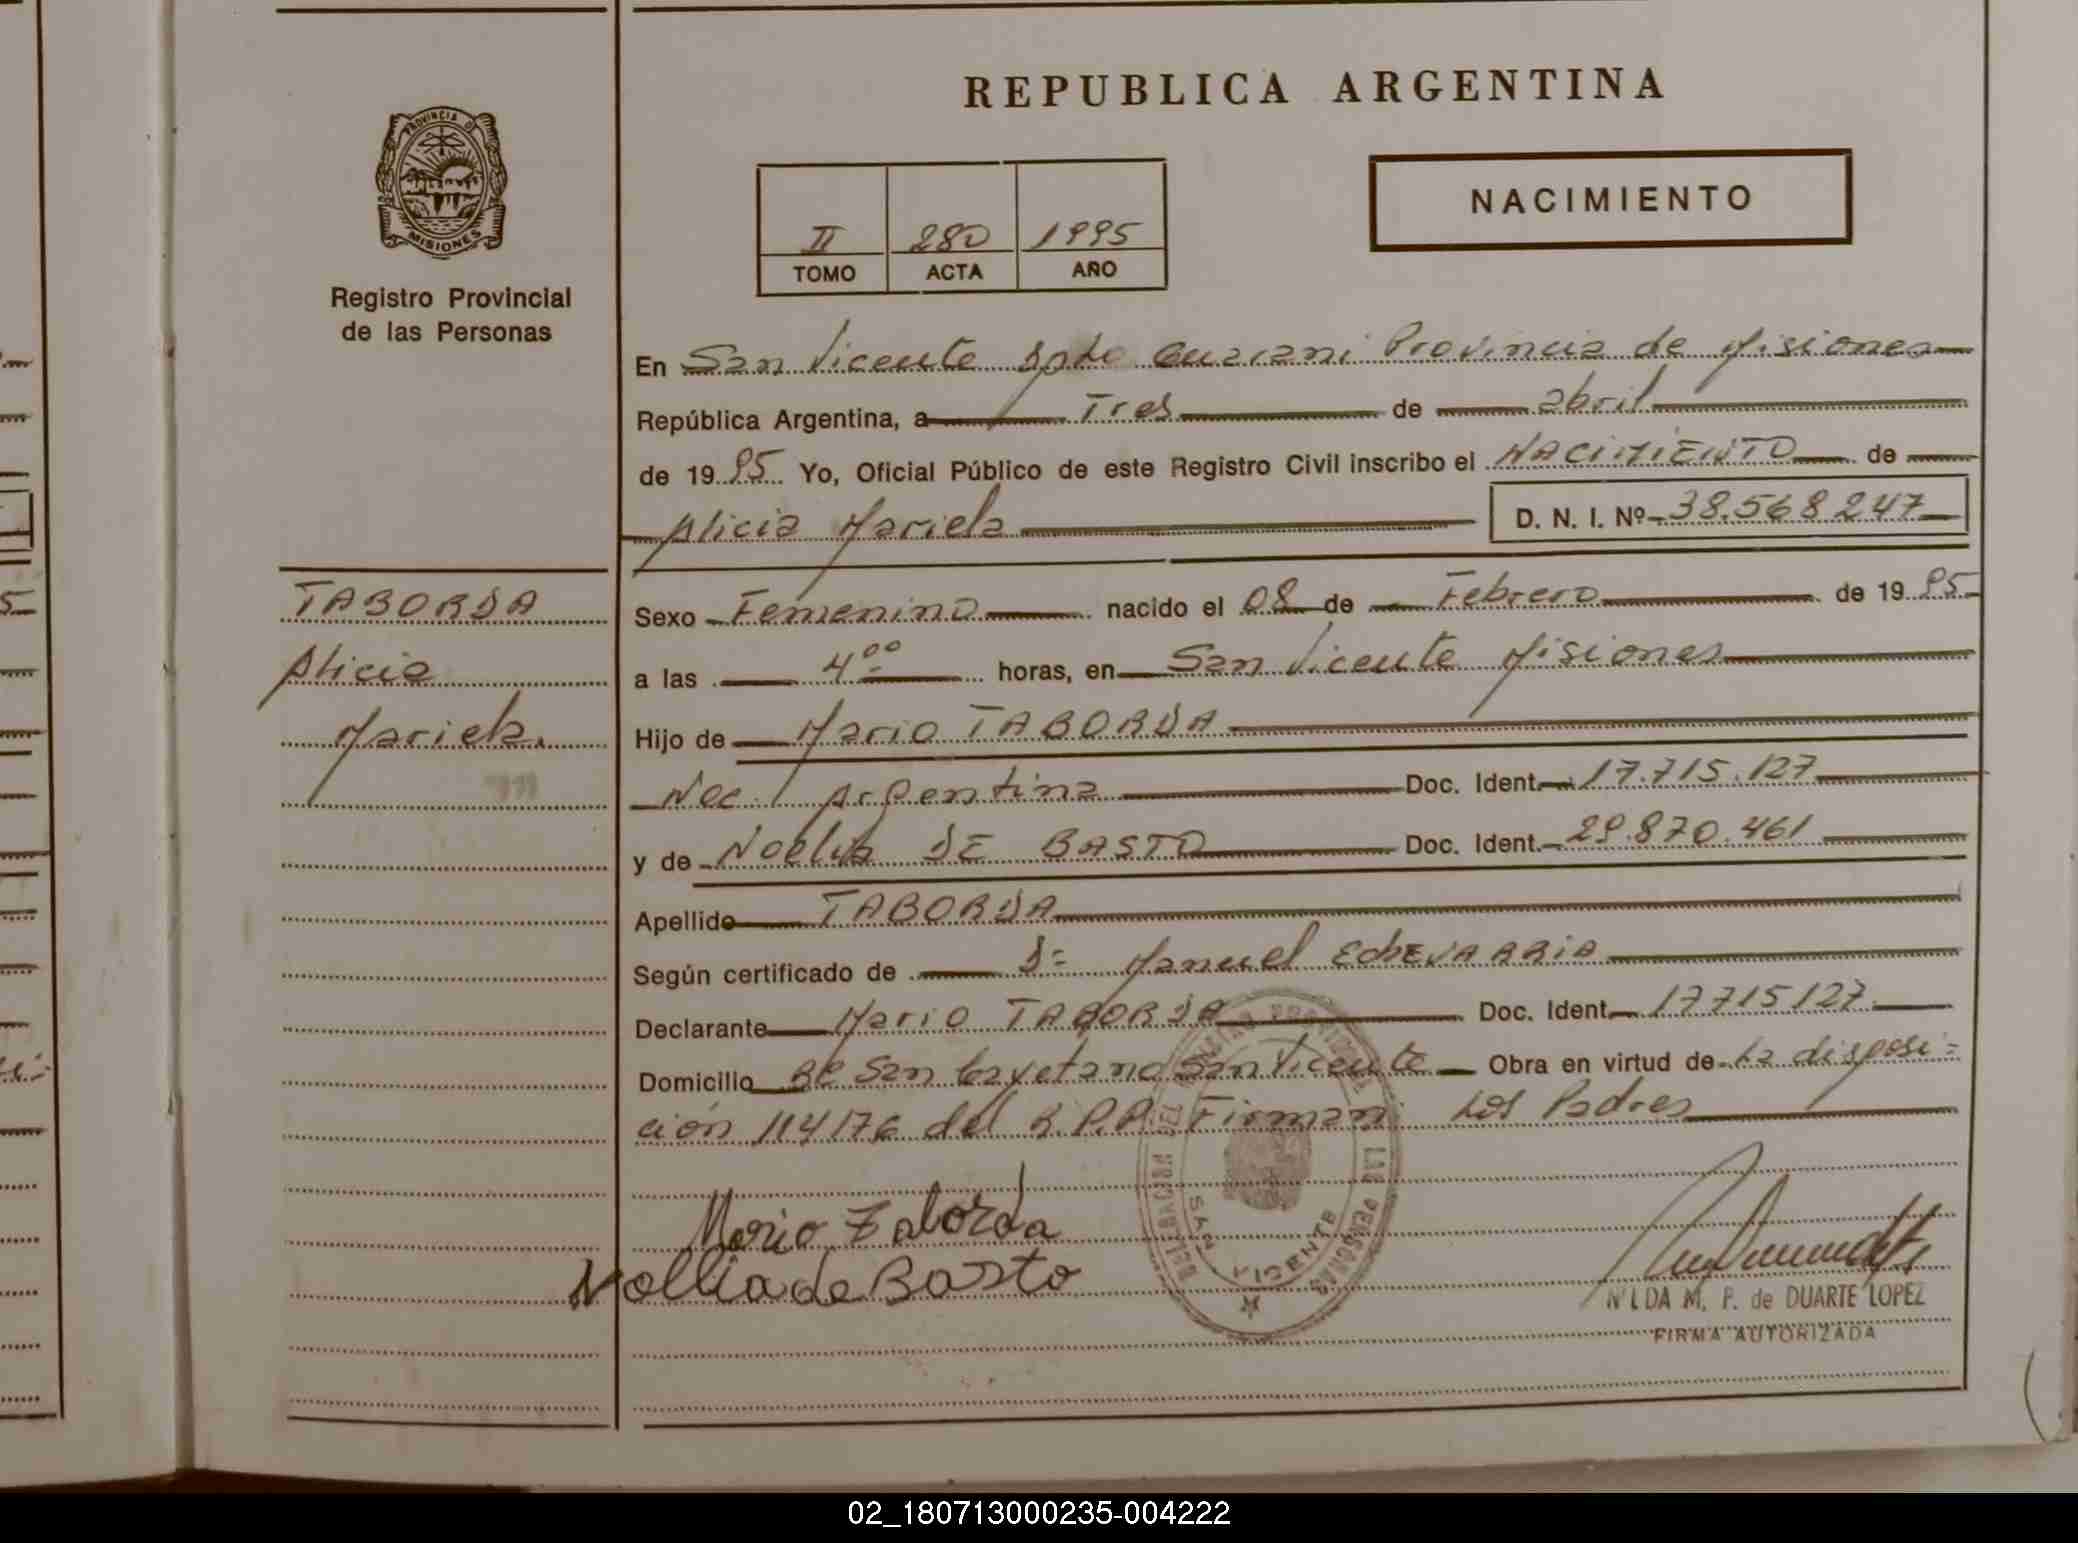 REPUBLICA ARGENTINA
PROVINCIA D
MISIONES
Registro Provincial
de las Personas
NACIMIENTO
II 280 1995
TOMO ACTA AÑO
En San Vicente Dpto Guarani Provincia de Misiones
República Argentina, a Tres de abril
de 1995 Yo, Oficial Público de este Registro Civil inscribo el NACIMIENTO de
Alicia Mariela D. N. I. Nº 38.568.247
TABORDA
Alicia
Mariela.
Sexo Femenino nacido el 08 de Febrero de 1995
a las 4 00 horas, en San Vicente Misiones
Hijo de Mario TABORDA
Nac. Argentina Doc. Ident. 17.715.127
y de Noelia DE BASTO Doc. Ident. 29.870.461
Apellido TABORDA
Según certificado de Manuel EchEVARRiA
Declarante Mario TABORDA Doc. Ident. 17715127
Domicilio Bº San Cayetano San Vicente Obra en virtud de La disposi=
ción 114176 del R.P.P. Firman: Los Padres
Mario Taborda
Nollia de Basto
DELEGACION DEL REGISTRO PROVINCIAL DE LAS PERSONAS
SAN VICENTE
NILDA M. P. de DUARTE LOPEZ
FIRMA AUTORIZADA
02_180713000235-004222